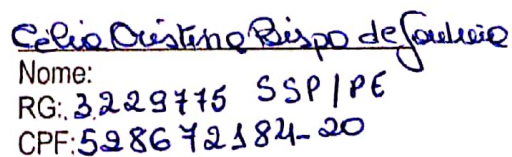 Célia Cristina Bispo de
Nome:
RG: 3.229775 SSP/PE
CPF: 528672184-20